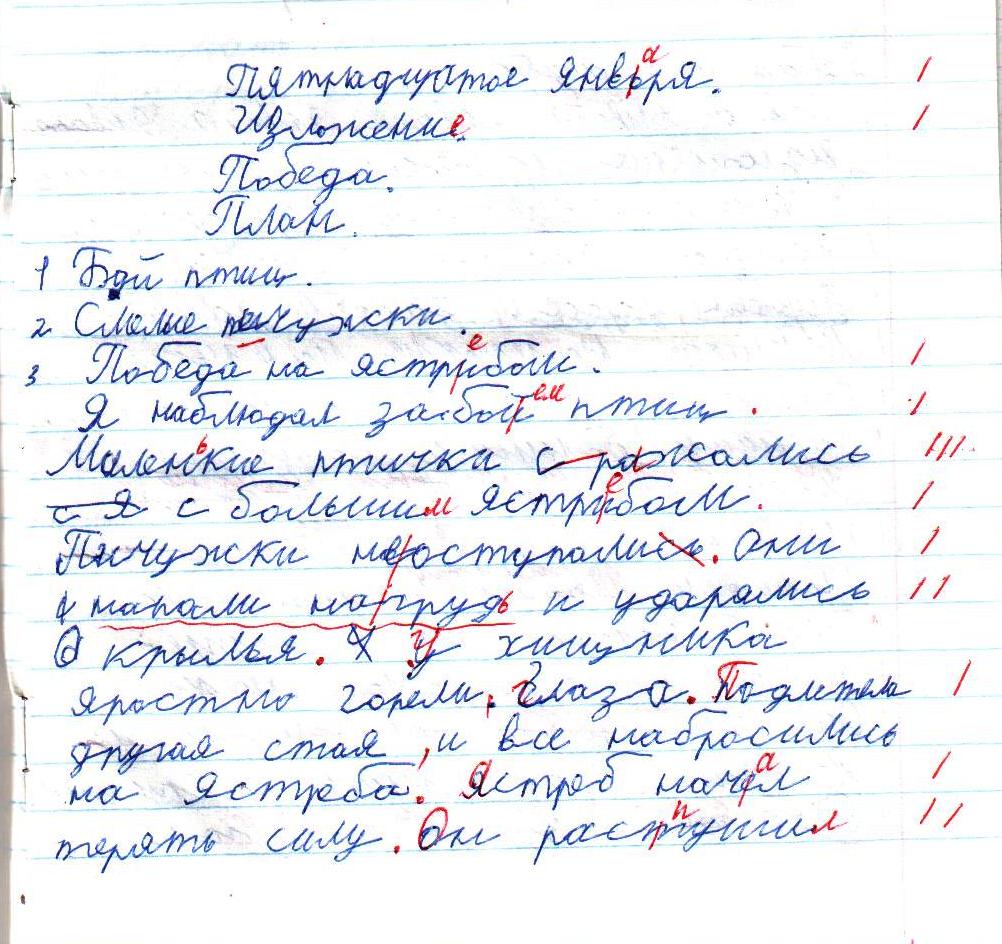 Пятнадцатое января.
Изложение
Победа.
План.
1 Бой птиц.
2 Смелые пичужки.
3 Победа на ястребом.
Я наблюдал за боем птиц.
Маленькие птички сражались
с я с большим ястребом.
Пичужки не оступались. Они
напали на грудь и ударялись
О крылья. У хищника
яростно горели глаза. Подлетела
другая стая, и все набросились
на ястреба. Ястреб начал
терять силу. Он распушил